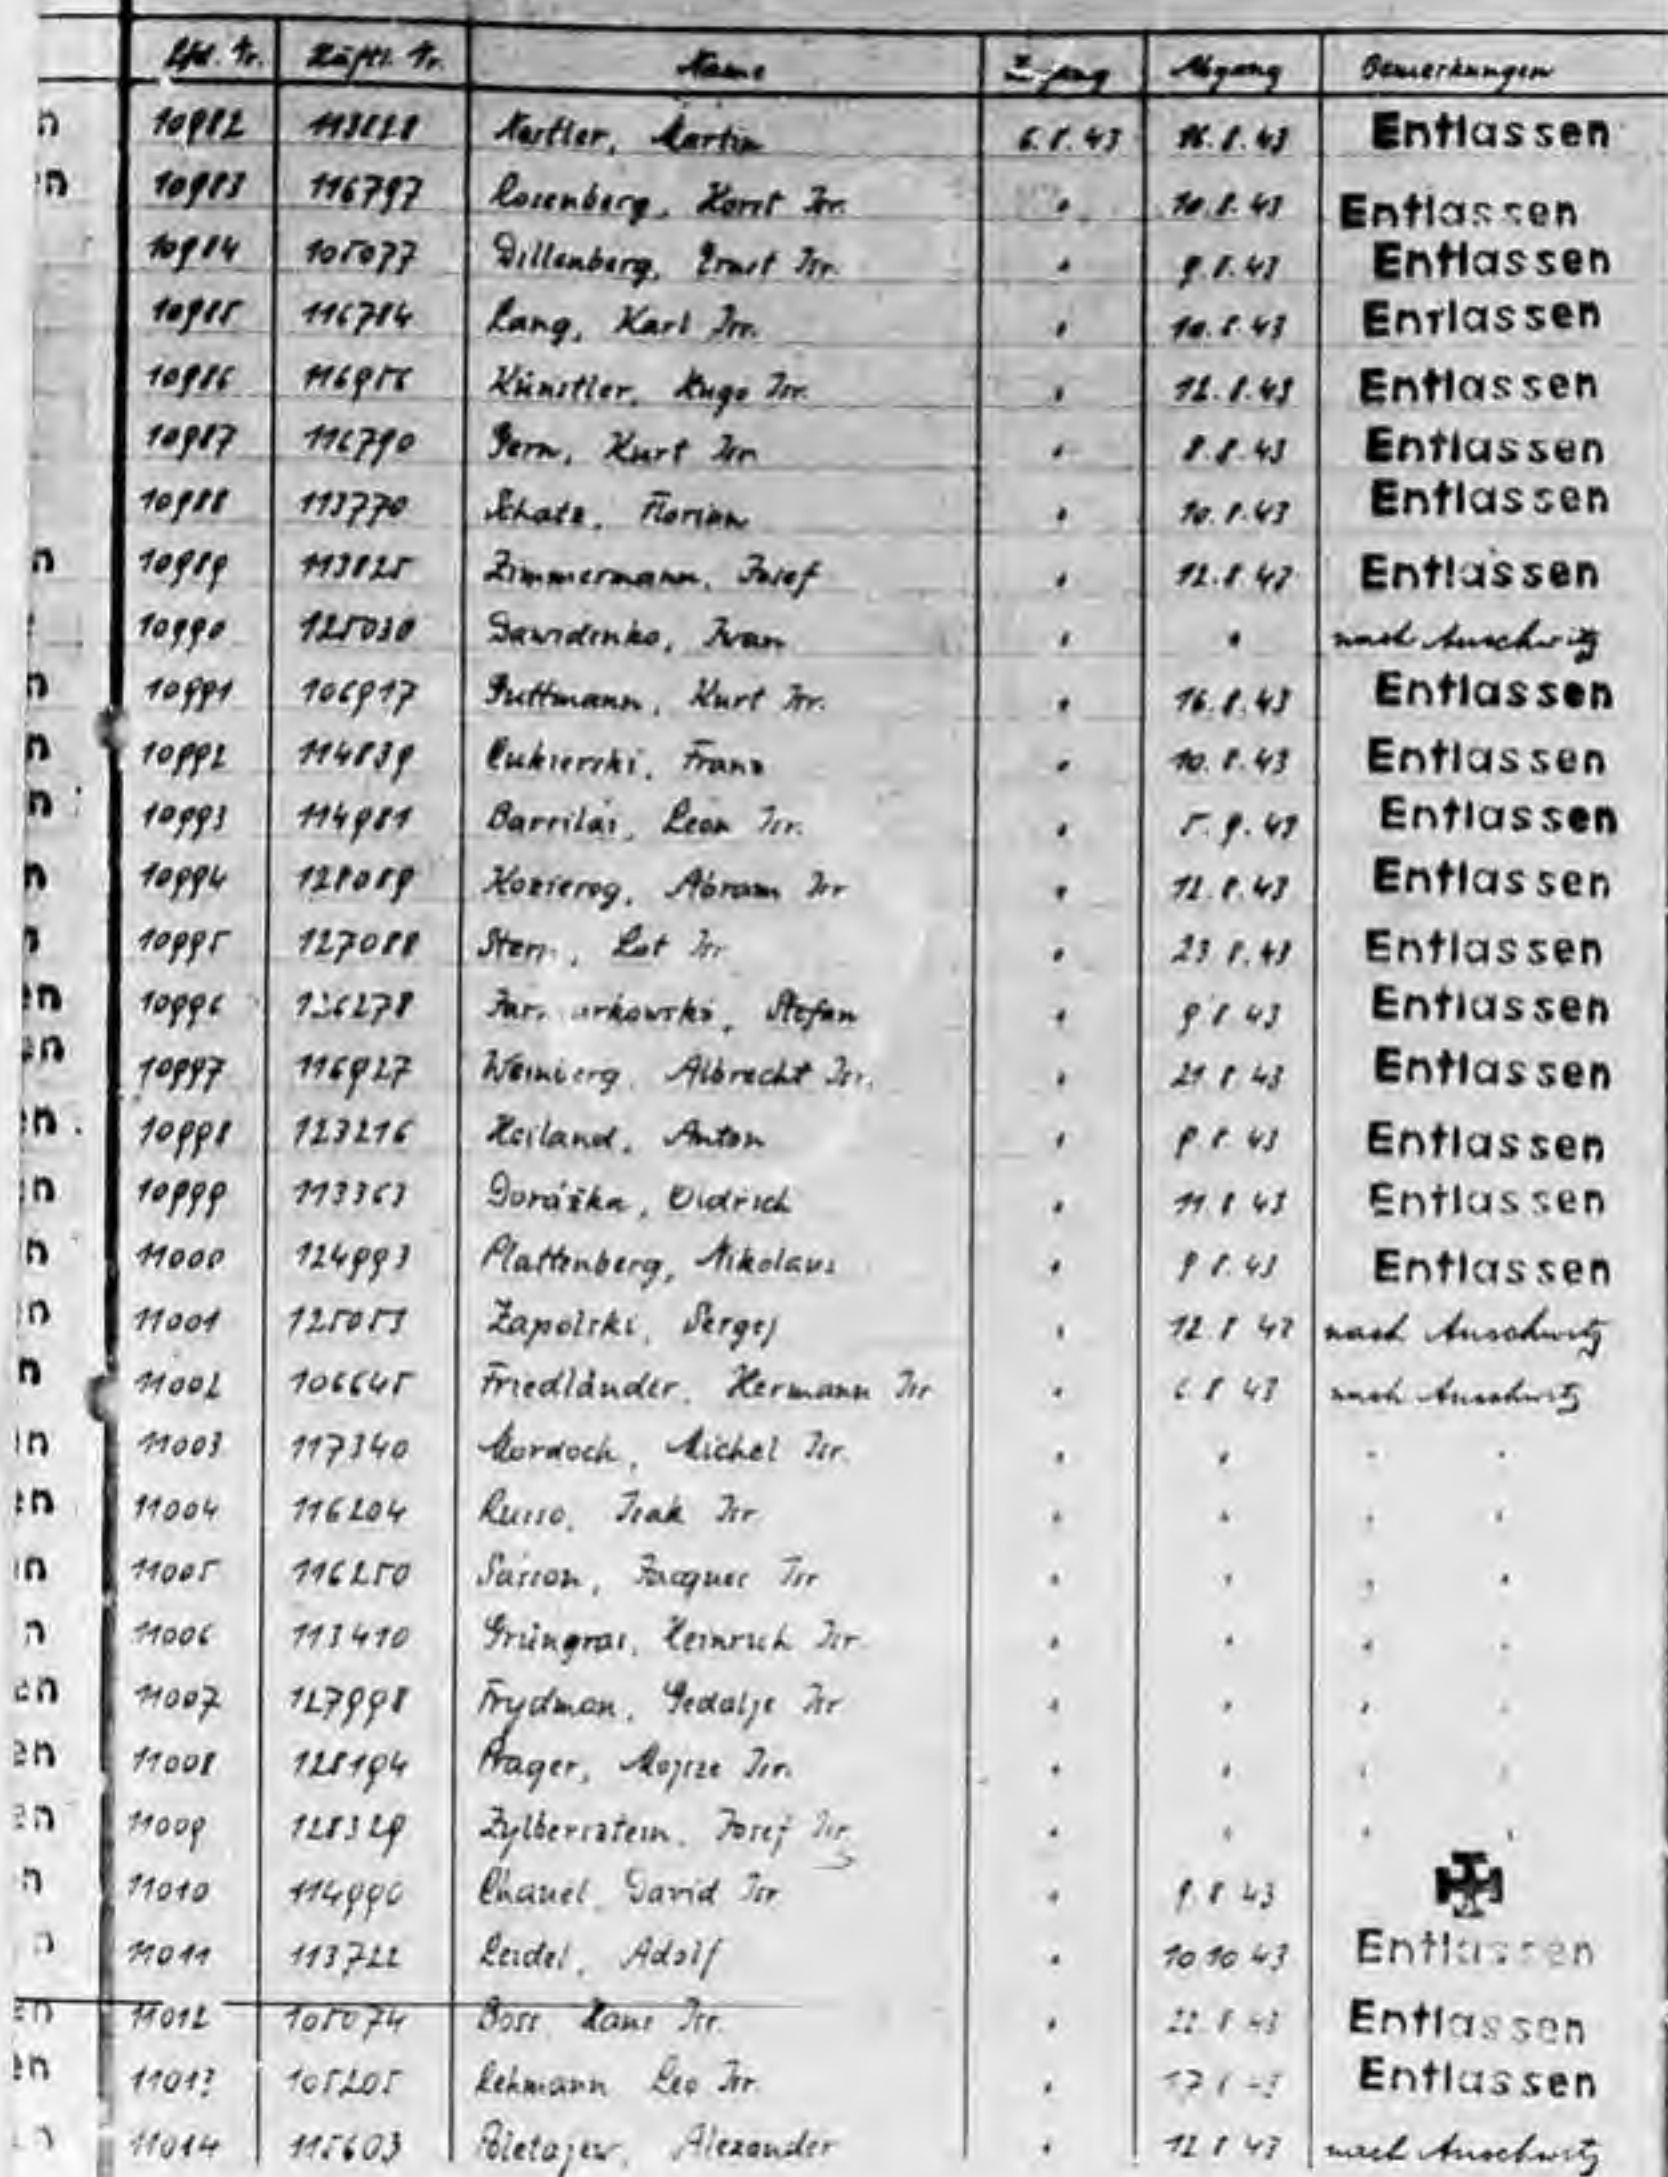 Lfd. Nr. Häftl. Nr. Name Zugang Abgang Bemerkungen
10982 113828 Nestler, Martin 6.8.43 16.8.43 Entlassen
10983 116797 Rosenberg, Horst Isr. " 10.8.43 Entlassen
10984 105077 Dillenberg, Ernst Isr. " 9.8.43 Entlassen
10985 116784 Lang, Karl Isr. " 10.8.43 Entlassen
10986 116956 Künstler, Hugo Isr. " 12.8.43 Entlassen
10987 116790 Gern, Kurt Isr. " 8.8.43 Entlassen
10988 113770 Schatz, Florian " 10.8.43 Entlassen
10989 113825 Zimmermann, Josef " 12.8.43 Entlassen
10990 125030 Dawidenko, Iwan " " nach Auschwitz
10991 106917 Guttmann, Kurt Isr. " 16.8.43 Entlassen
10992 114839 Cukierski, Franz " 10.8.43 Entlassen
10993 114981 Barzilai, Leon Isr. " 5.9.43 Entlassen
10994 128089 Kozierog, Abram Isr " 12.8.43 Entlassen
10995 127088 Stern, Lot Isr " 23.8.43 Entlassen
10996 Stefan " 9.8.43 Entlassen
10997 116927 Weinberg, Albrecht Isr. " 21.8.43 Entlassen
10998 123216 Heiland, Anton " 9.8.43 Entlassen
10999 113363 Doráżka, Oldrich " 11.8.43 Entlassen
11000 124993 Plattenberg, Nikolaus " 9.8.43 Entlassen
11001 125053 Zapolski, Sergej " 12.8.43 nach Auschwitz
11002 106645 Friedländer, Hermann Isr " 6.8.43 nach Auschwitz
11003 117340 Mordoch, Michel Isr. " " " "
11004 116204 Russo, Isak Isr " " " "
11005 116250 Sasson, Jacques Isr " " " "
11006 113410 Grüngras, Heinrich Isr. " " " "
11007 127998 Frydman, Gedalje Isr " " " "
11008 128194 Prager, Mojsze Isr. " " " "
11009 128329 Zylbersztein, Josef Isr " " " "
11010 114990 David Isr " 9.8.43
11011 113722 Leidel, Adolf " 10.10.43 Entlassen
11012 105074 Boss Hans Isr. " 22.8.43 Entlassen
11013 105205 Lehmann Leo Isr. " Entlassen
11014 115603 Poletajew, Alexander " 12.8.43 nach Auschwitz